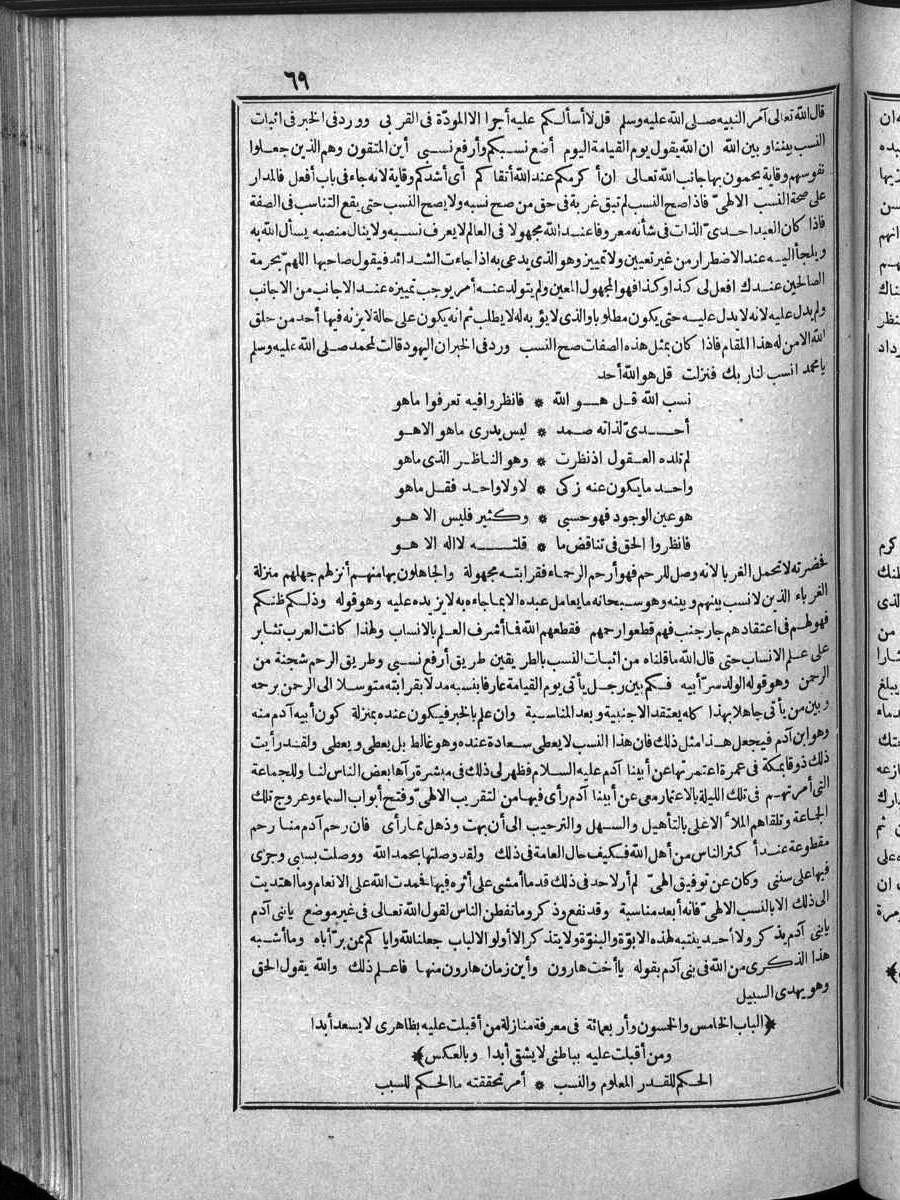 ٦٩
قال الله تعالى آمر النبيه صلى الله عليه وسلم قل لا أسألكم عليه أجرا الا المودّة فى القربى وورد فى الخبر فى اثبات
النسب بيننا و بين الله ان الله يقول يوم القيامة اليوم أضع نسبكم وأرفع نسبى أين المتقون وهم الذين جعلوا
نفوسهم وقاية يحمون بها جانب الله تعالى ان أكرمكم عند الله أتقاكم أى أشدكم وقاية لانه جاء فى باب أفعل فالمدار
على صحة النسب الالهىّ فاذا صح النسب لم تبق غربة فى حق من صح نسبه ولا يصح النسب حتى يقع التناسب فى الصفة
فاذا كان العبد احدىّ الذات فى شأنه معروفا عند الله مجهولا فى العالم لا يعرف نسبه ولا ينال منصبه يسأل الله به
ويلجأ اليه عند الاضطرار من غير تعيين ولا تمييز وهو الذى يدعى به اذا جاءت الشدائد فيقول صاحبها اللهمّ بحرمة
الصالحين عندك افعل لى كذا وكذا فهو المجهول المعين ولم يتولد عنه أمر يوجب تمييزه عند الاجانب من الاجانب
ولم يدل عليه لانه لا يدل عليه حتى يكون مطلوبا والذى لا يؤبه له لا يطلب ثم انه يكون على حالة لا يزنه فيها أحد من خلق
الله الا من له هذا المقام فاذا كان بمثل هذه الصفات صح النسب ورد فى الخبر ان اليهود قالت لمحمد صلى الله عليه وسلم
يا محمد انسب لنا ربك فنزلت قل هو الله أحد
نسب الله قل هو الله * فانظروا فيه تعرفوا ما هو
أحدىّ لذاته صمد * ليس يدرى ما هو الا هو
لم تلده العقول اذ نظرت * وهو الناظر الذى ما هو
واحد ما يكون عنه زكى * لا ولا واحد فقل ما هو
هو عين الوجود فهو حسبى * وكثير فليس الا هو
فانظروا الحق فى تناقض ما * قلته لا اله الا هو
فحضرته لا تحمل الغربا لانه وصل للرحم فهو أرحم الرحماء فقرابته مجهولة والجاهلون بها منهم أنزلهم جهلهم منزلة
الغرباء الذين لا نسب بينهم وبينه وهو سبحانه ما يعامل عبده الا بما جاءه به لا يزيده عليه وهو قوله وذلكم ظنكم
فهو لهم فى اعتقادهم جار جنب فهم قطعوا رحمهم فقطعهم الله فما أشرف العلم بالانساب ولهذا كانت العرب تثابر
على علم الانساب حتى قال الله ما قلناه من اثبات النسب بالطريقين طريق أرفع نسبى وطريق الرحم شجنة من
الرحمن وهو قوله الولد سرّ أبيه فكم بين رجل يأتى يوم القيامة عارفا بنسبه مدلا بقرابته متوسلا الى الرحمن برحمه
وبين من يأتى جاهلا بهذا كله يعتقد الاجنبية وبعد المناسبة وان علم بالخبر فيكون عنده بمنزلة كون أبيه آدم منه
وهو ابن آدم فيجعل هذا مثل ذلك فان هذا النسب لا يعطى سعادة عنده وهو غالط بل يعطى ويعطى ولقد رأيت
ذلك ذوقا بمكة فى عمرة اعتمرتها عن أبينا آدم عليه السلام فظهر لى ذلك فى مبشرة رآها بعض الناس لنا وللجماعة
التى أمرتهم فى تلك الليلة بالاعتمار معى عن أبينا آدم رأى فيها من لتقريب الالهىّ وفتح أبواب السماء وعروج تلك
الجاعة وتلقاهم الملأ الاعلى بالتأهيل والسهل والترحيب الى أن بهت وذهل مما رأى فان رحم آدم منا رحم
مقطوعة عند أكثر الناس من أهل الله فكيف حال العامة فى ذلك ولقد وصلتها بحمد الله ووصلت بسببى وجرى
فيها على سننى وكان عن توفيق الهىّ لم أر لاحد فى ذلك قدما أمشى على أثره فيها فحمدت الله على الانعام وما اهتديت
الى ذلك الا بالنسب الالهىّ فانه أبعد مناسبة وقد نفع وذكر وما تفطن الناس لقول الله تعالى فى غير موضع يا بنى آدم
يا بنى آدم يذكر ولا أحد ينتبه لهذه الابوّة والبنوّة ولا يتذكر الا أولو الالباب جعلنا الله واياكم ممن برّ أباه وما أشبه
هذا الذكرى من الله فى بنى آدم بقوله يا أخت هارون وأين زمان هارون منها فاعلم ذلك والله يقول الحق
وهو يهدى السبيل
﴿الباب الخامس والخمسون وأربعمائة فى معرفة منازلة من أقبلت عليه بظاهرى لا يسعد أبدا
ومن أقبلت عليه بباطنى لا يشقى أبدا وبالعكس﴾
الحكم للقدر المعلوم والنسب * أمر تحققته ما الحكم للسبب